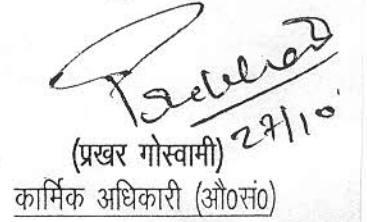 27/10
(प्रखर गोस्वामी)
कार्मिक अधिकारी (औ0सं0)